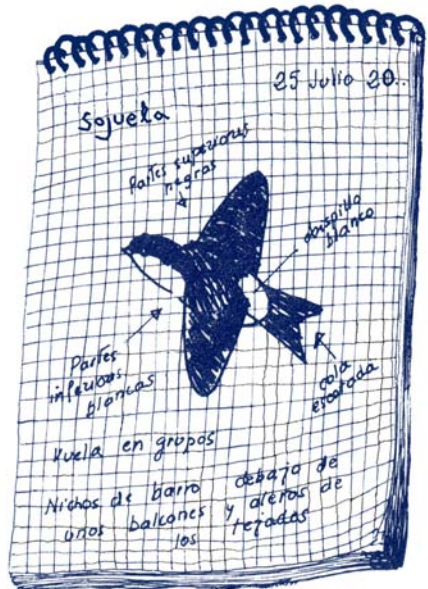 25 Julio 20..
Sojuela
Partes superiores
negras
obispillo
blanco
Partes
inferiores
blancas
cola
escotada
Vuela en grupos
Nidos de barro debajo de
unos balcones y aleros de
los tejados